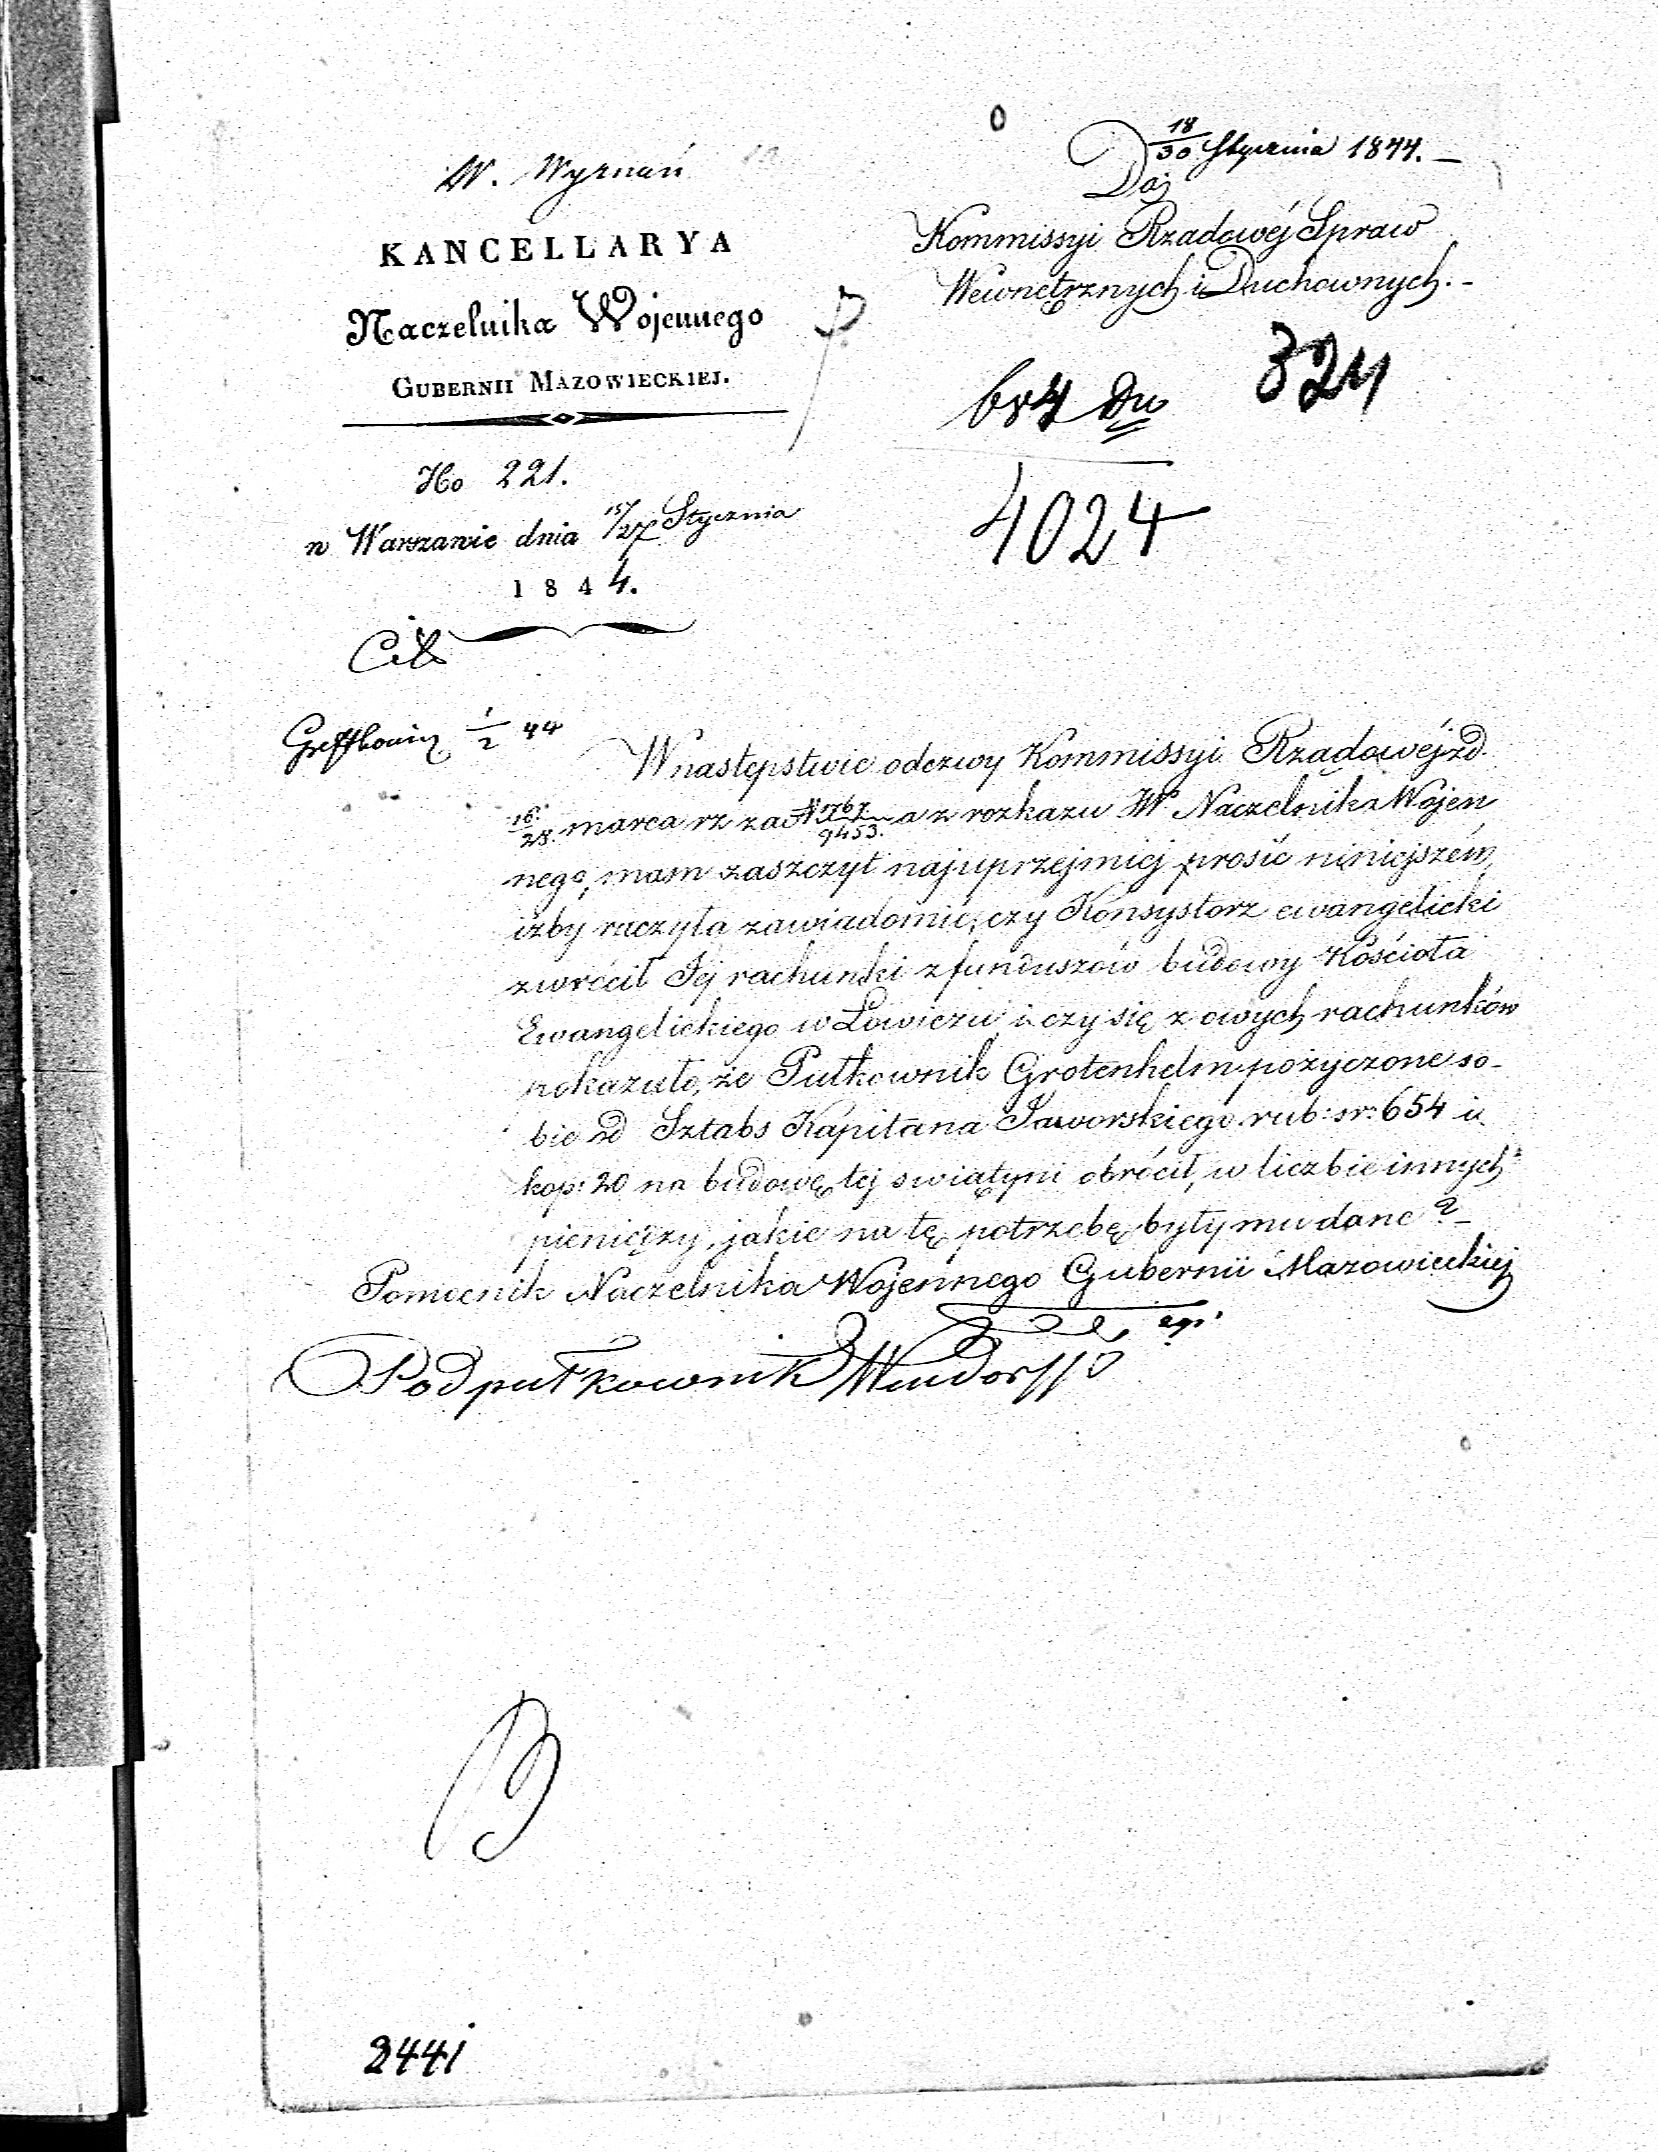 W. Wyznań
KANCELLARYA
Naczelnika Wojennego
GUBERNII MAZOWIECKIEJ.
No 221.
w Warszawie dnia 15/27 Stycznia
1844.
18/30 Stycznia 1844. –
Do
Kommissyi Rządowéj Spraw
Wewnętrznych i Duchownych. –
324
4024
1/2 44
W następstwie odezwy Kommissyi Rządowéj zd.
16/28 marca rz za N 9453. a z rozkazu W Naczelnika Wojen
nego, mam zaszczyt najuprzejmiej prosić niniejszém,
iżby raczyła zawiadomić, czy Konsystorz ewangelicki
zwrócił Jej rachunki z funduszów budowy Kościoła
Ewangelickiego w Łowiczu i czy się z owych rachunków
pokazało, że Pułkownik Grotenhelm pożyczone so-
bie od Sztabs Kapitana Jaworskiego rub: sr: 654 i
kop: 20 na budowę tej swiątyni obrócił, w liczbie innych
pieniędzy, jakie na tę potrzebę były mu dane? –
Pomocnik Naczelnika Wojennego Gubernii Mazowieckiej
Podpułkownik
2441